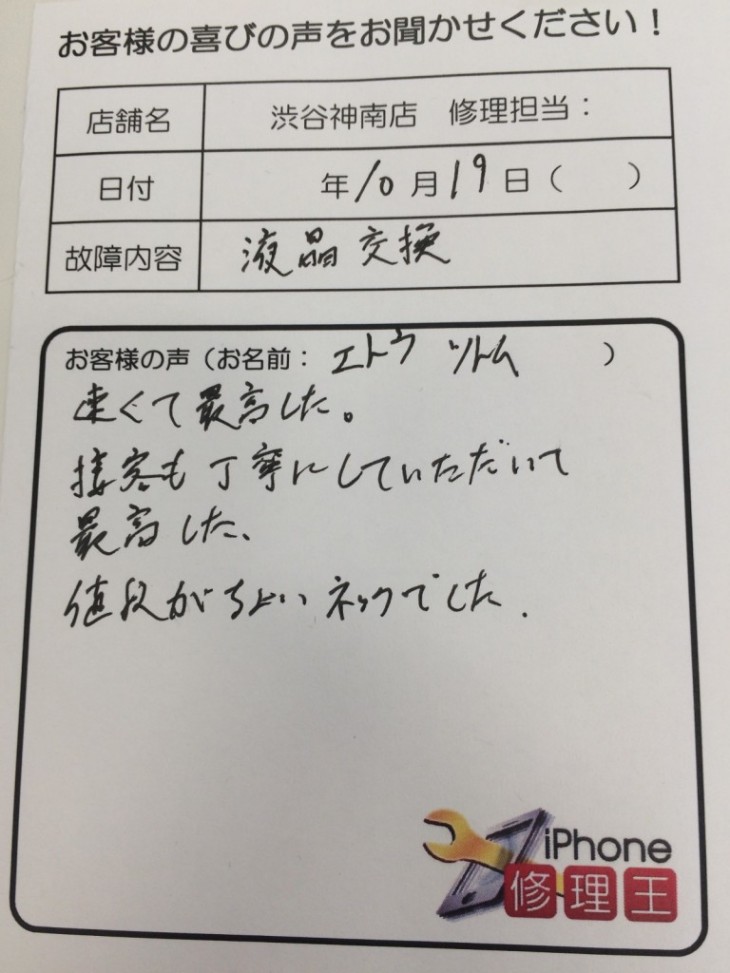 お客様の喜びの声をお聞かせください！
店舗名 渋谷神南店 修理担当：
日付 年10月19日（ ）
故障内容 液晶交換
お客様の声（お名前： エトウ ツトム ）
速くて最高した。
接客も丁寧にしていただいて
最高した、
値段がちょいネックでした.
iPhone
修理王